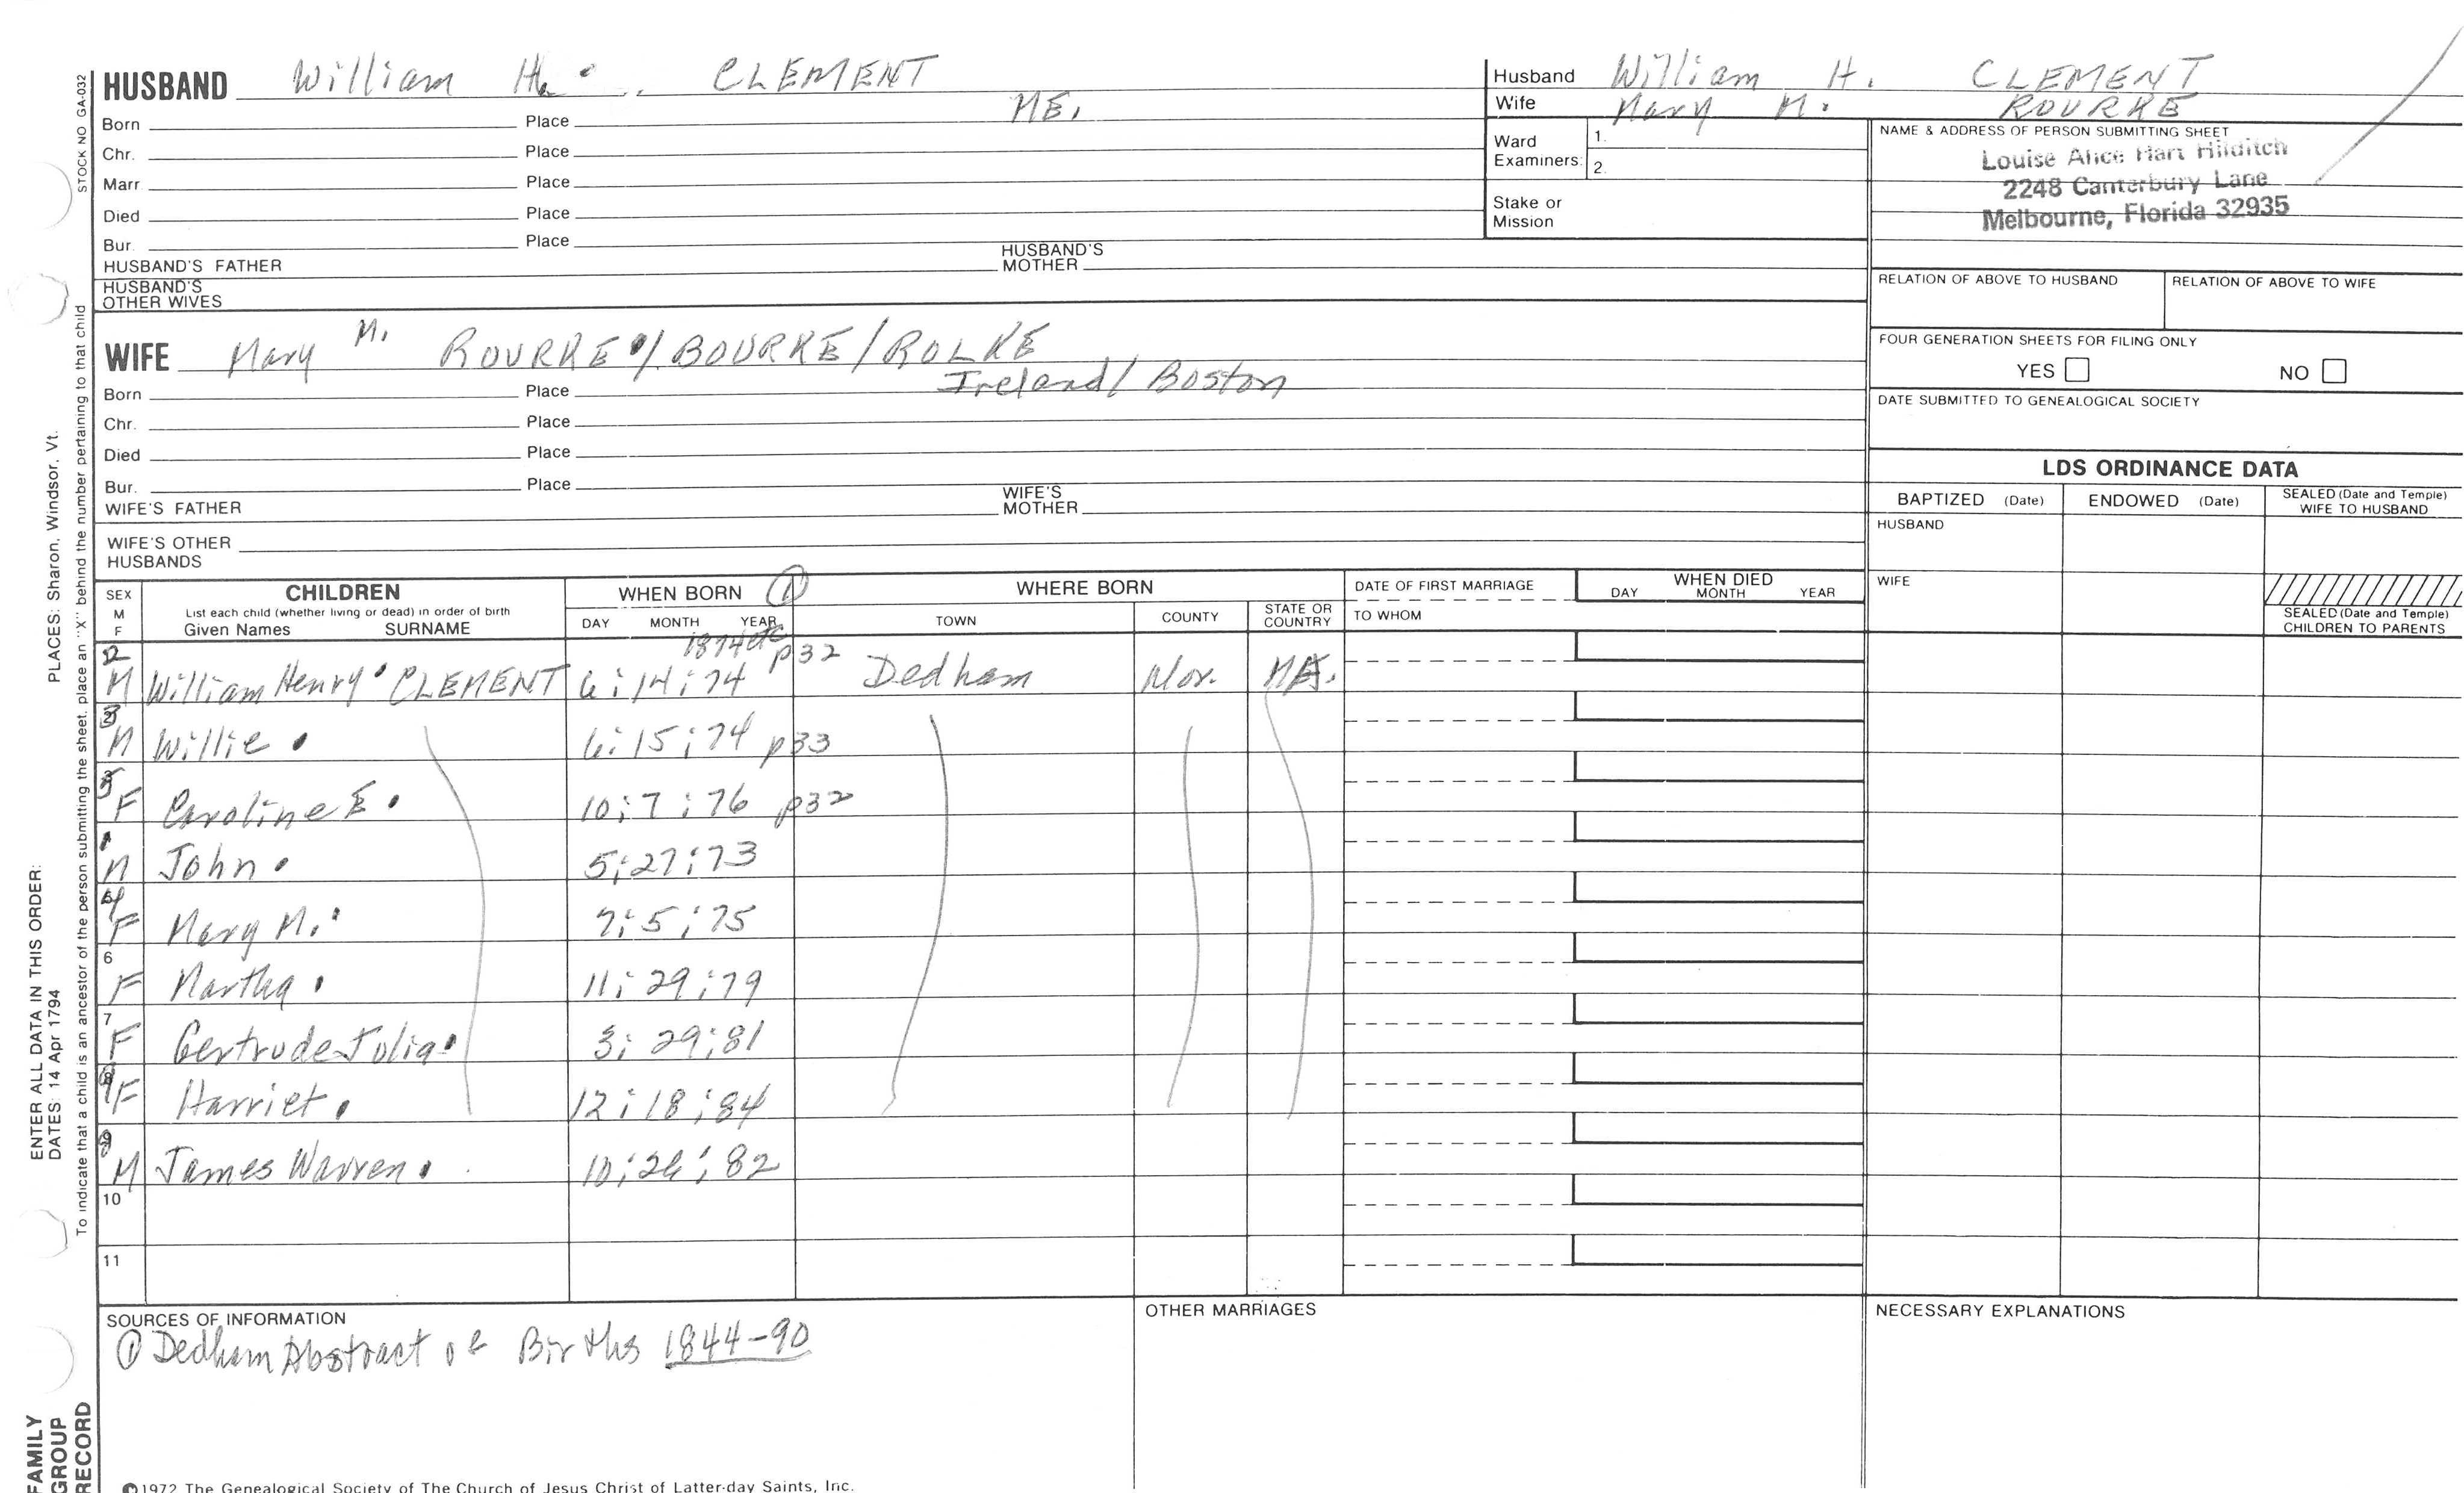 HUSBAND William H. CLEMENT
Born Place ME.
Chr. Place
Marr Place
Died Place
Bur. Place
HUSBAND'S FATHER HUSBAND'S MOTHER
HUSBAND'S OTHER WIVES
Husband William H. CLEMENT
Wife Mary M. ROURKE
Ward Examiners: 1.
2.
Stake or Mission
NAME & ADDRESS OF PERSON SUBMITTING SHEET
Louise Alice Hart Hilditch
2248 Canterbury Lane
Melbourne, Florida 32935
RELATION OF ABOVE TO HUSBAND RELATION OF ABOVE TO WIFE
FOUR GENERATION SHEETS FOR FILING ONLY
YES NO
DATE SUBMITTED TO GENEALOGICAL SOCIETY
WIFE Mary M. ROURKE/BOURKE/ROLKE
Born Place Ireland/Boston
Chr. Place
Died Place
Bur. Place
WIFE'S FATHER WIFE'S MOTHER
WIFE'S OTHER HUSBANDS
LDS ORDINANCE DATA
BAPTIZED (Date) ENDOWED (Date) SEALED (Date and Temple) WIFE TO HUSBAND
HUSBAND
WIFE
SEALED (Date and Temple) CHILDREN TO PARENTS
SEX M F CHILDREN WHEN BORN ① WHERE BORN DATE OF FIRST MARRIAGE WHEN DIED
List each child (whether living or dead) in order of birth
Given Names SURNAME DAY MONTH YEAR TOWN COUNTY STATE OR COUNTRY TO WHOM DAY MONTH YEAR
1874 etc
2 M William Henry CLEMENT 6:14:74 p32 Dedham Nor. MA.
3 M Willie 6:15:74 p33
5 F Caroline E. 10:7:76 p32
1 M John 5:27:73
4 F Mary M. 7:5:75
6 F Martha 11:29:79
7 F Gertrude Julia 3:29:81
F Harriet 12:18:84
M James Warren
10
11
SOURCES OF INFORMATION
① Dedham Abstract of Births 1844-90
OTHER MARRIAGES
NECESSARY EXPLANATIONS
©1972 The Genealogical Society of The Church of Jesus Christ of Latter-day Saints, Inc.
STOCK NO GA-032
ENTER ALL DATA IN THIS ORDER:
DATES: 14 Apr 1794 PLACES: Sharon, Windsor, Vt.
To indicate that a child is an ancestor of the person submitting the sheet, place an "X" behind the number pertaining to that child
FAMILY
GROUP
RECORD